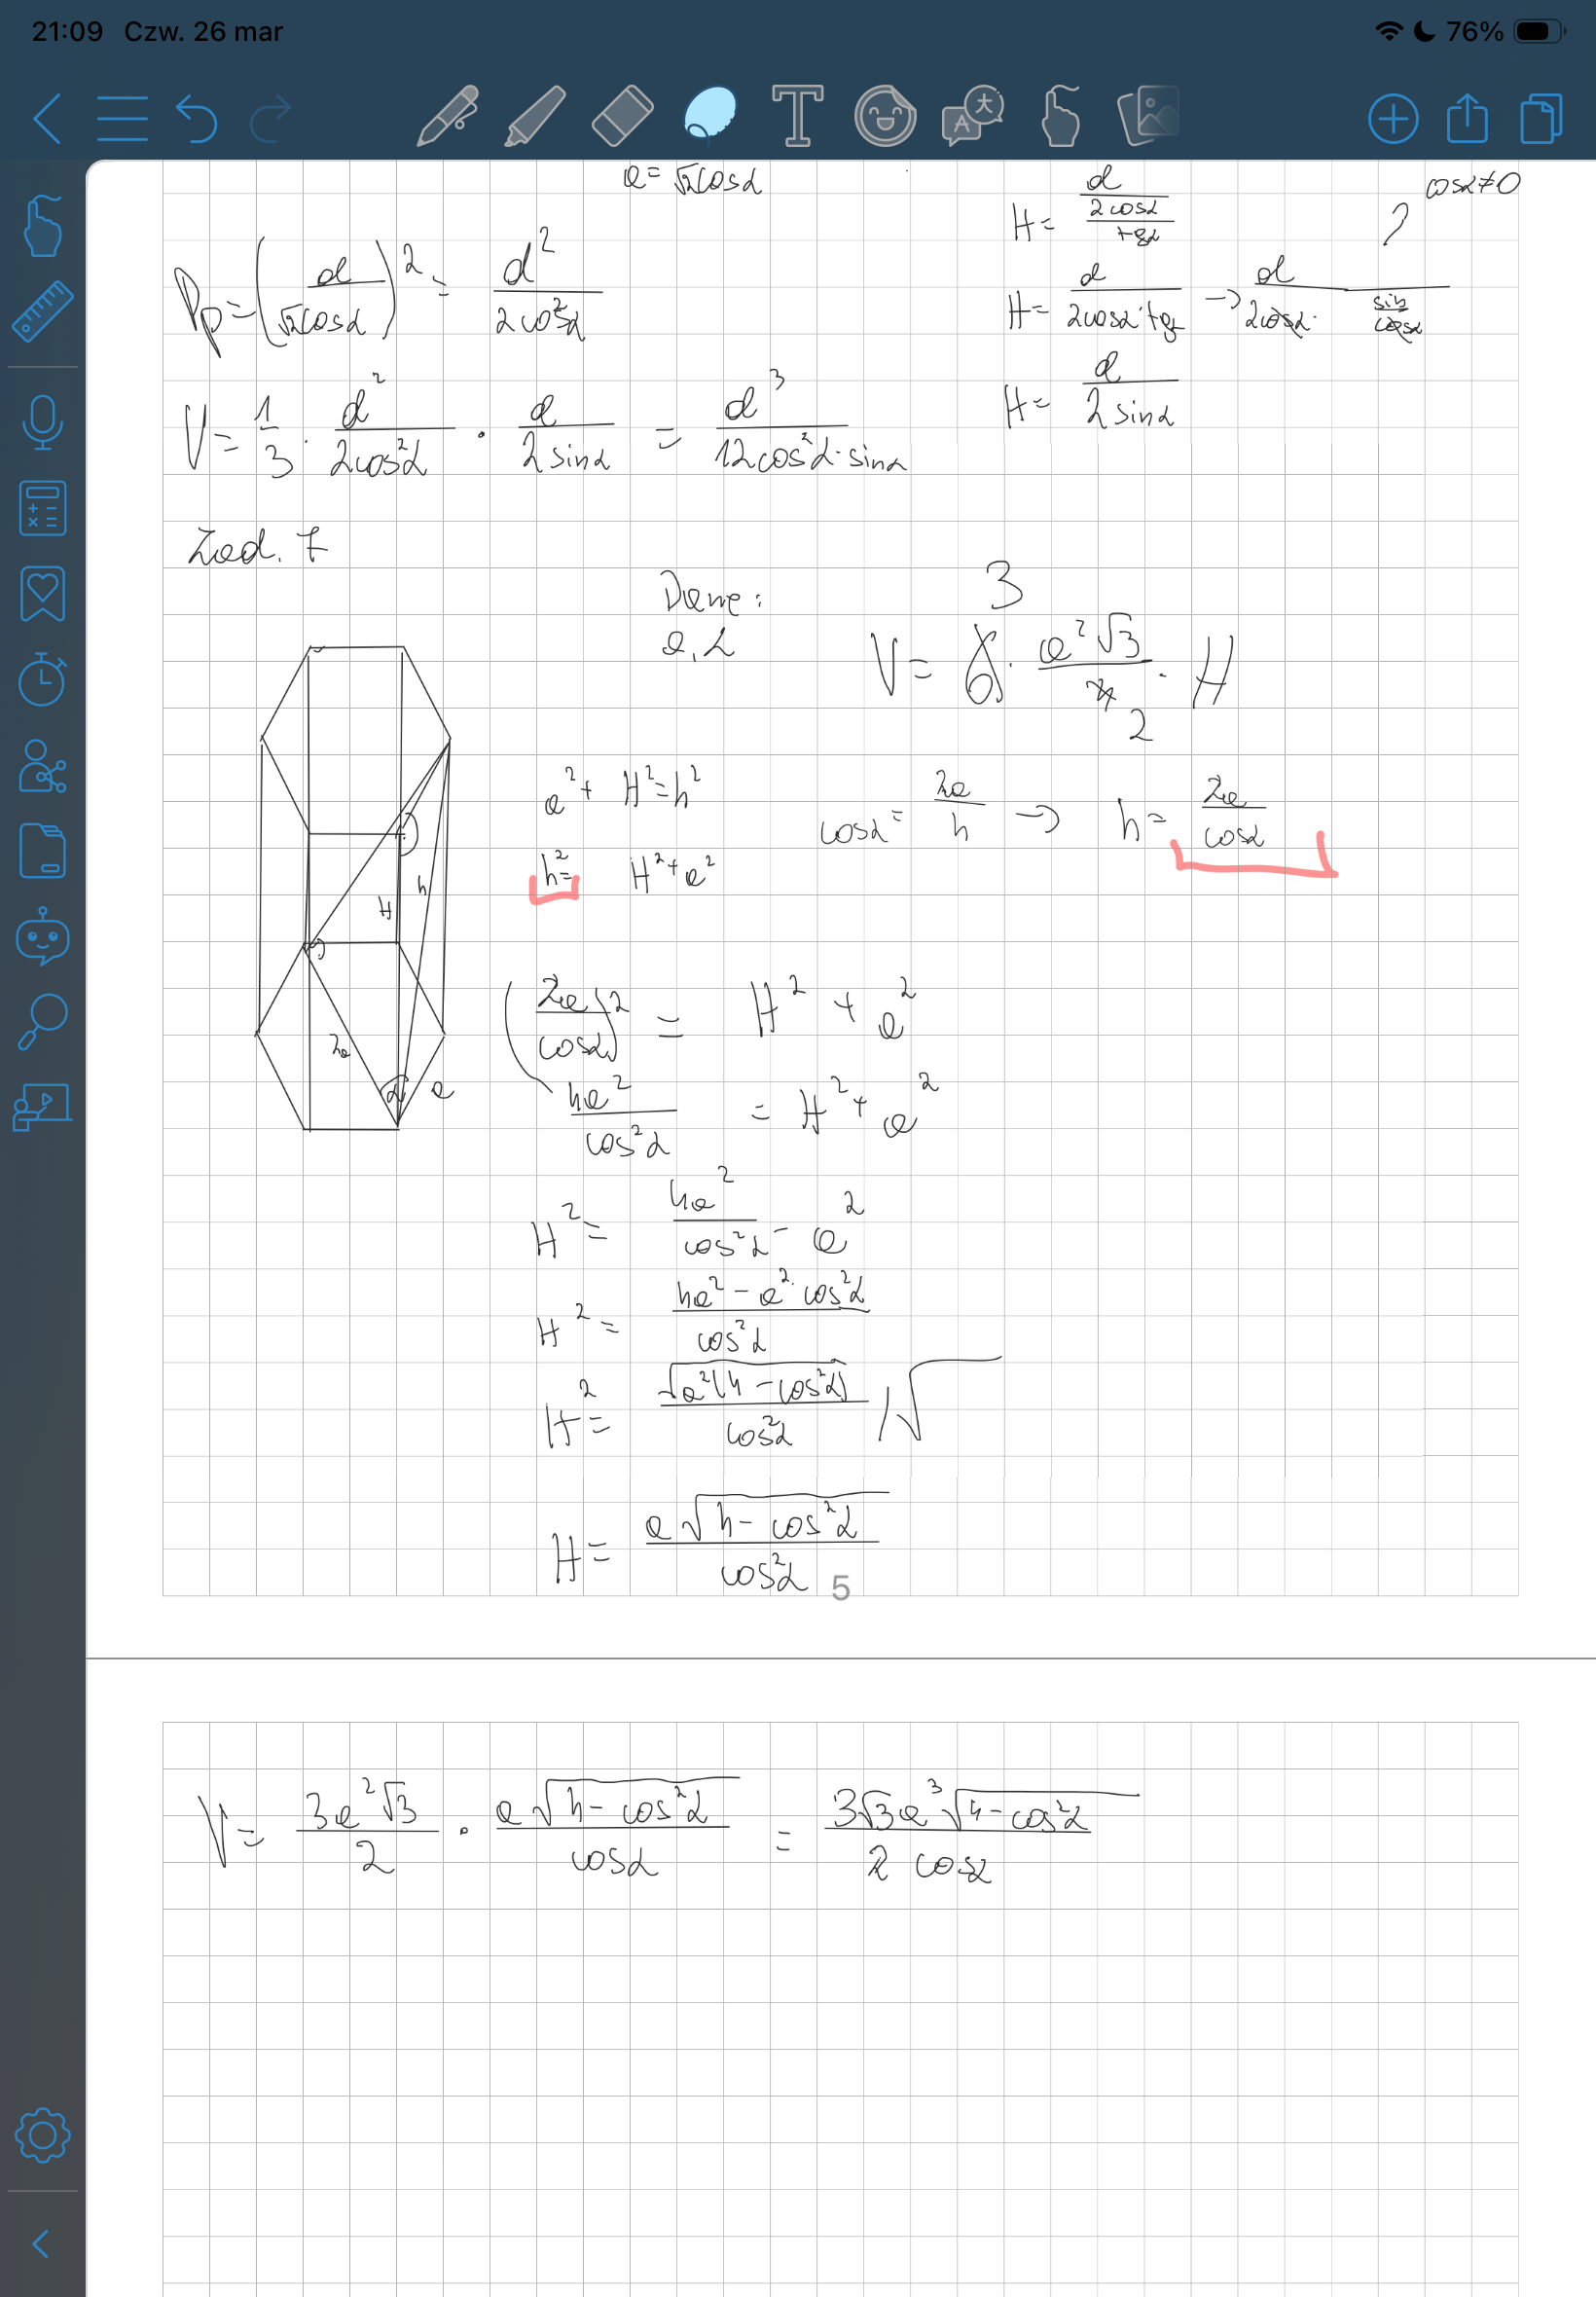 21:09 Czw. 26 mar 76%
a = √2cosα
H = d/(2cosα)/tgα
cosα≠0
?
Pp = (d/(√2cosα))² = d²/(2cos²α)
H = d/(2cosα·tgα) → d/(2cosα · sin/cosα)
H = d/(2sinα)
V = 1/3 · d²/(2cos²α) · d/(2sinα) = d³/(12cos²α·sinα)
Zad. 7
Dane:
a, α
3
V = 6 · a²√3/4 · H
2
a² + H² = h²
cosα = 2a/h → h = 2a/cosα
h² = H² + a²
h
H
2a
α
a
(2a/cosα)² = H² + a²
4a²/cos²α = H² + a²
H² = 4a²/cos²α - a²
H² = (4a² - a²·cos²α)/cos²α
H² = √(a²(4 - cos²α))/cos²α /√
H = a√(4 - cos²α)/cos²α
5
V = 3a²√3/2 · a√(4 - cos²α)/cosα = 3√3a³√(4 - cos²α)/(2 cosα)